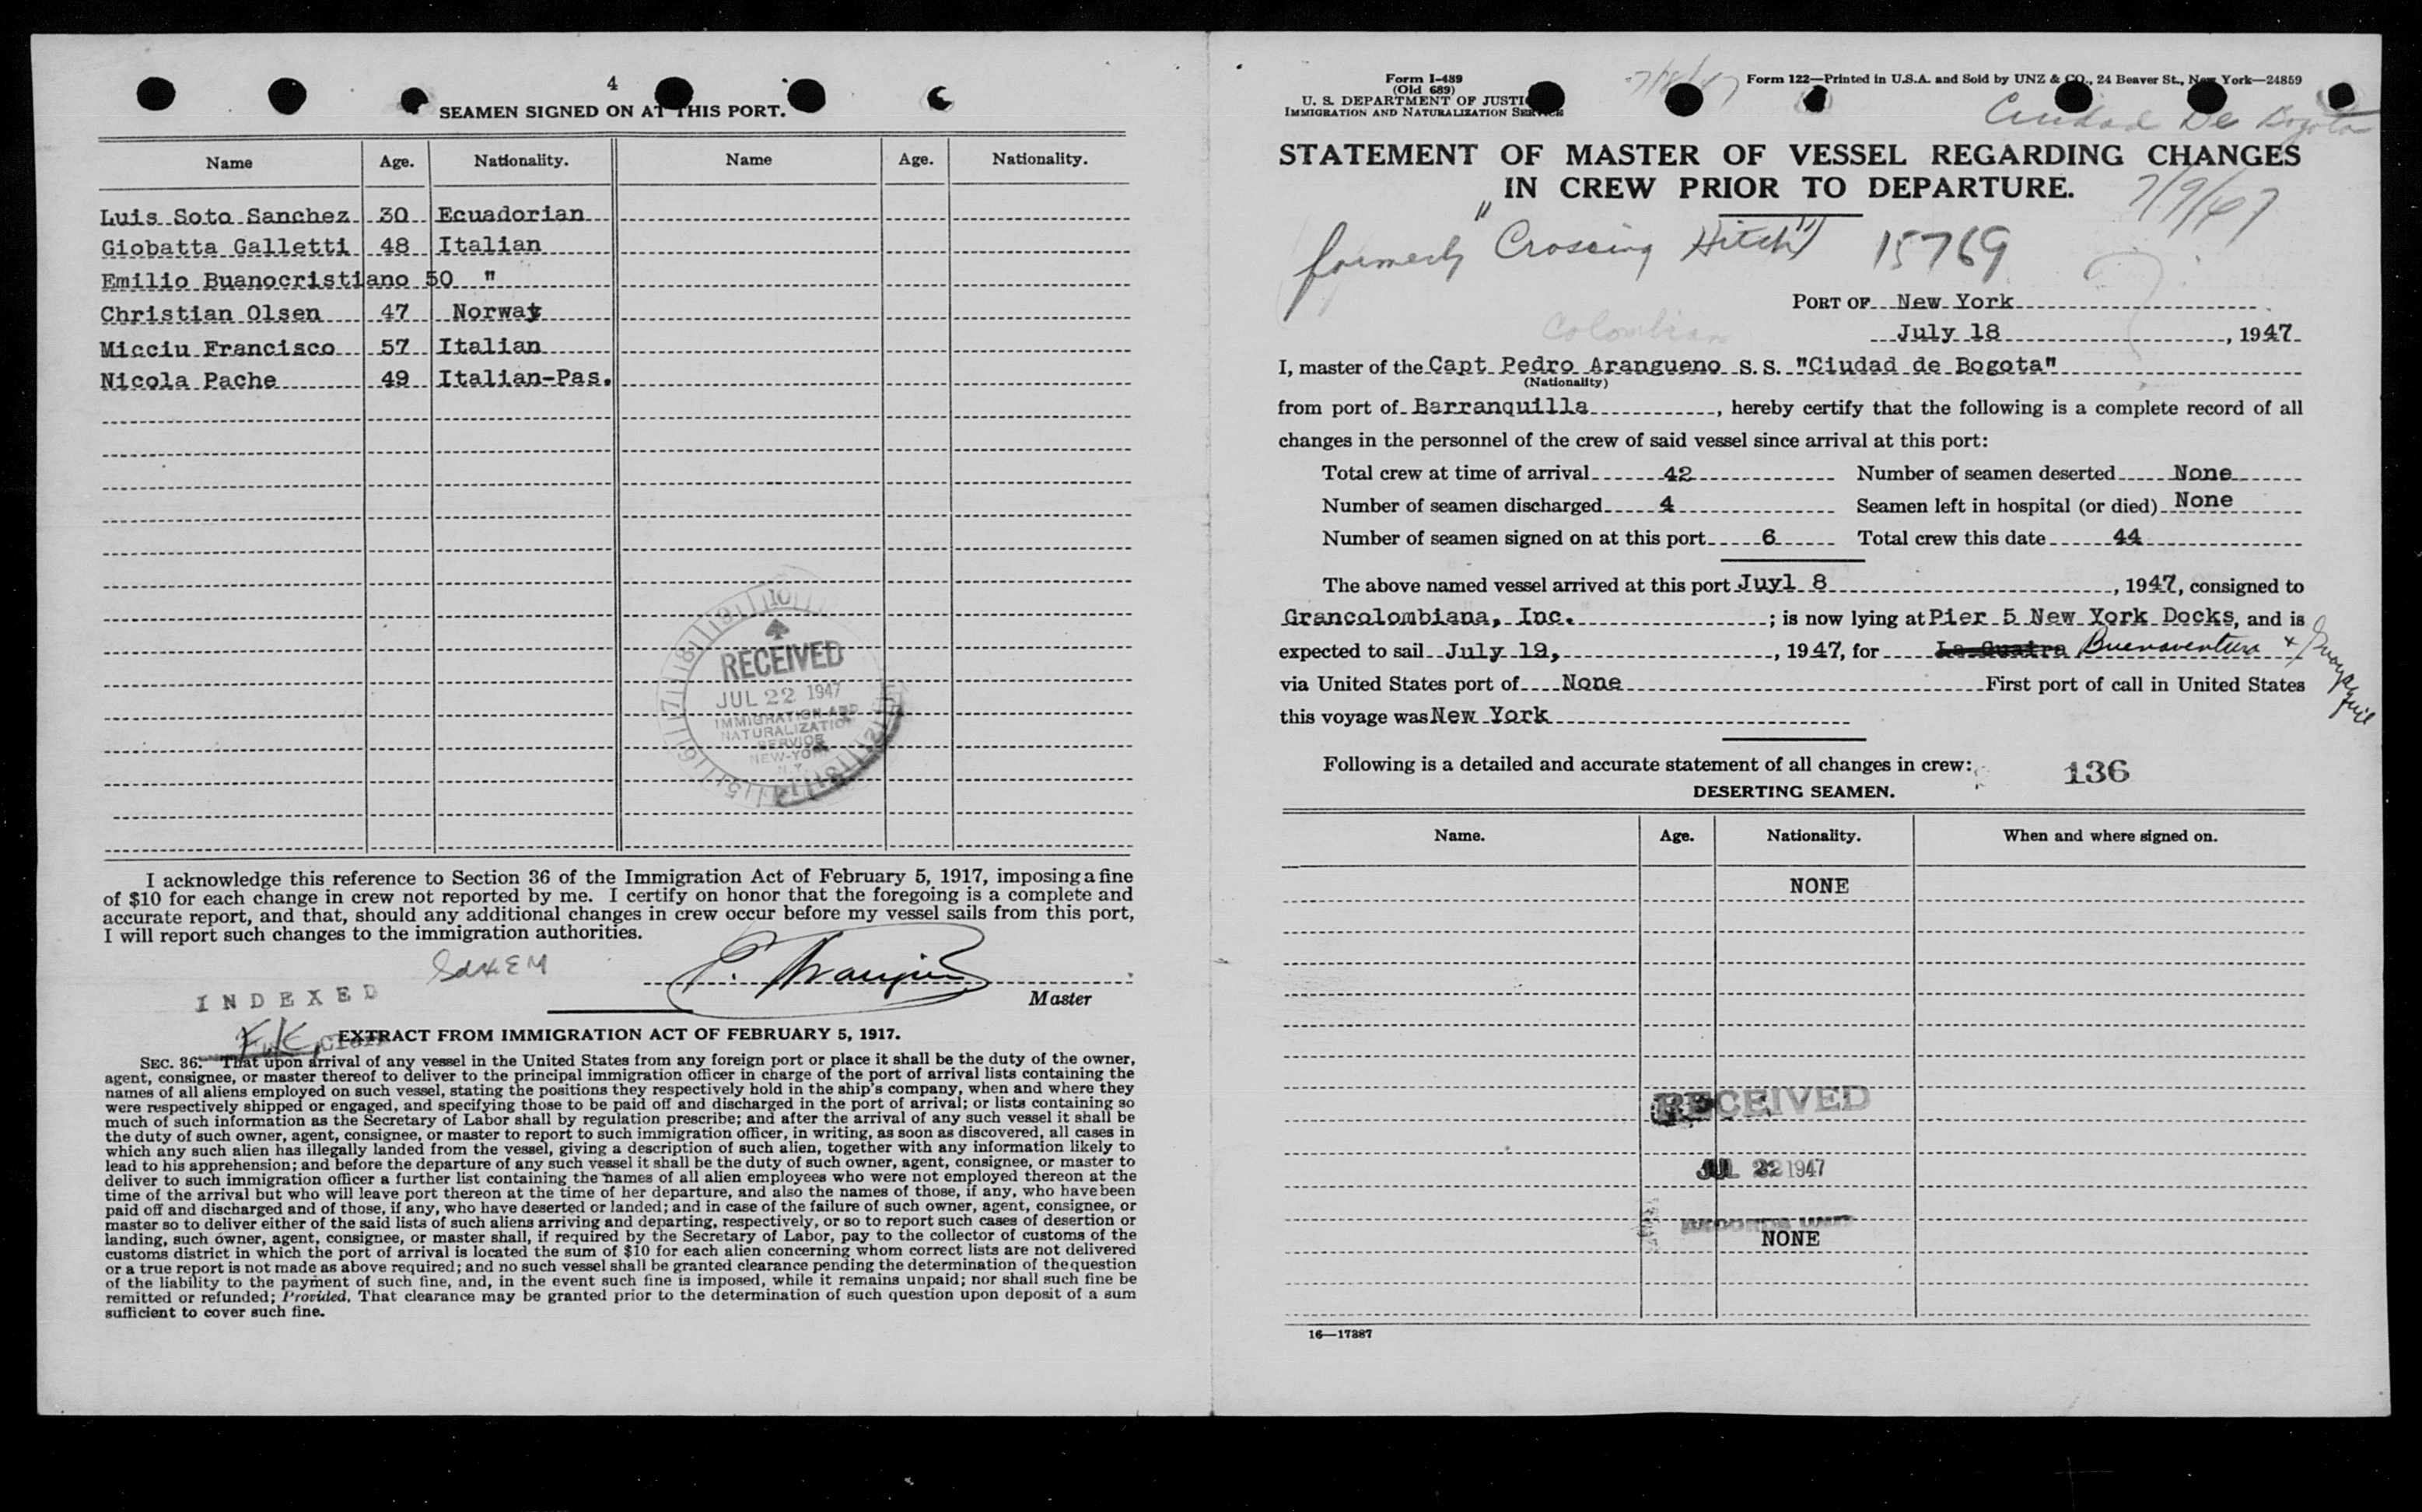 4
SEAMEN SIGNED ON AT THIS PORT.
Name Age. Nationality. Name Age. Nationality.
Luis Soto Sanchez 30 Ecuadorian
Giobatta Galletti 48 Italian
Emilio Buanocristiano 50 "
Christian Olsen 47 Norway
Micciu Francisco 57 Italian
Nicola Pache 49 Italian-Pas.
RECEIVED
JUL 22 1947
IMMIGRATION AND
NATURALIZATION
SERVICE
NEW-YORK
N.Y.
I acknowledge this reference to Section 36 of the Immigration Act of February 5, 1917, imposing a fine
of $10 for each change in crew not reported by me. I certify on honor that the foregoing is a complete and
accurate report, and that, should any additional changes in crew occur before my vessel sails from this port,
I will report such changes to the immigration authorities.
Master
INDEXED
EXTRACT FROM IMMIGRATION ACT OF FEBRUARY 5, 1917.
SEC. 36. That upon arrival of any vessel in the United States from any foreign port or place it shall be the duty of the owner,
agent, consignee, or master thereof to deliver to the principal immigration officer in charge of the port of arrival lists containing the
names of all aliens employed on such vessel, stating the positions they respectively hold in the ship's company, when and where they
were respectively shipped or engaged, and specifying those to be paid off and discharged in the port of arrival; or lists containing so
much of such information as the Secretary of Labor shall by regulation prescribe; and after the arrival of any such vessel it shall be
the duty of such owner, agent, consignee, or master to report to such immigration officer, in writing, as soon as discovered, all cases in
which any such alien has illegally landed from the vessel, giving a description of such alien, together with any information likely to
lead to his apprehension; and before the departure of any such vessel it shall be the duty of such owner, agent, consignee, or master to
deliver to such immigration officer a further list containing the names of all alien employees who were not employed thereon at the
time of the arrival but who will leave port thereon at the time of her departure, and also the names of those, if any, who have been
paid off and discharged and of those, if any, who have deserted or landed; and in case of the failure of such owner, agent, consignee, or
master so to deliver either of the said lists of such aliens arriving and departing, respectively, or so to report such cases of desertion or
landing, such owner, agent, consignee, or master shall, if required by the Secretary of Labor, pay to the collector of customs of the
customs district in which the port of arrival is located the sum of $10 for each alien concerning whom correct lists are not delivered
or a true report is not made as above required; and no such vessel shall be granted clearance pending the determination of the question
of the liability to the payment of such fine, and, in the event such fine is imposed, while it remains unpaid; nor shall such fine be
remitted or refunded; Provided, That clearance may be granted prior to the determination of such question upon deposit of a sum
sufficient to cover such fine.
Form I-489
(Old 689)
U. S. DEPARTMENT OF JUSTICE
IMMIGRATION AND NATURALIZATION SERVICE
7/18/47
Form 122—Printed in U.S.A. and Sold by UNZ & CO., 24 Beaver St., New York—24859
Ciudad De Bogota
STATEMENT OF MASTER OF VESSEL REGARDING CHANGES
IN CREW PRIOR TO DEPARTURE.
7/9/47
formerly "Crossing Hitch" 15769
PORT OF New York
Colombian
July 18, 1947
I, master of the Capt Pedro Arangueno S. S. "Ciudad de Bogota"
(Nationality)
from port of Barranquilla, hereby certify that the following is a complete record of all
changes in the personnel of the crew of said vessel since arrival at this port:
Total crew at time of arrival 42 Number of seamen deserted None
Number of seamen discharged 4 Seamen left in hospital (or died) None
Number of seamen signed on at this port 6 Total crew this date 44
The above named vessel arrived at this port Juyl 8, 1947, consigned to
Grancolombiana, Inc.; is now lying at Pier 5 New York Docks, and is
expected to sail July 19, 1947, for La Guaira Buenaventura + Guayaquil
via United States port of None First port of call in United States
this voyage was New York
Following is a detailed and accurate statement of all changes in crew:
136
DESERTING SEAMEN.
Name. Age. Nationality. When and where signed on.
NONE
RECEIVED
JUL 22 1947
RECORDS UNIT
NONE
16—17387